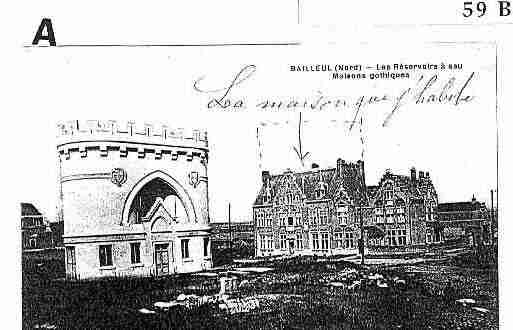 59 B
A
BAILLEUL (Nord) — Les Réservoirs à eau
Maisons gothiques
La maison que j'habite